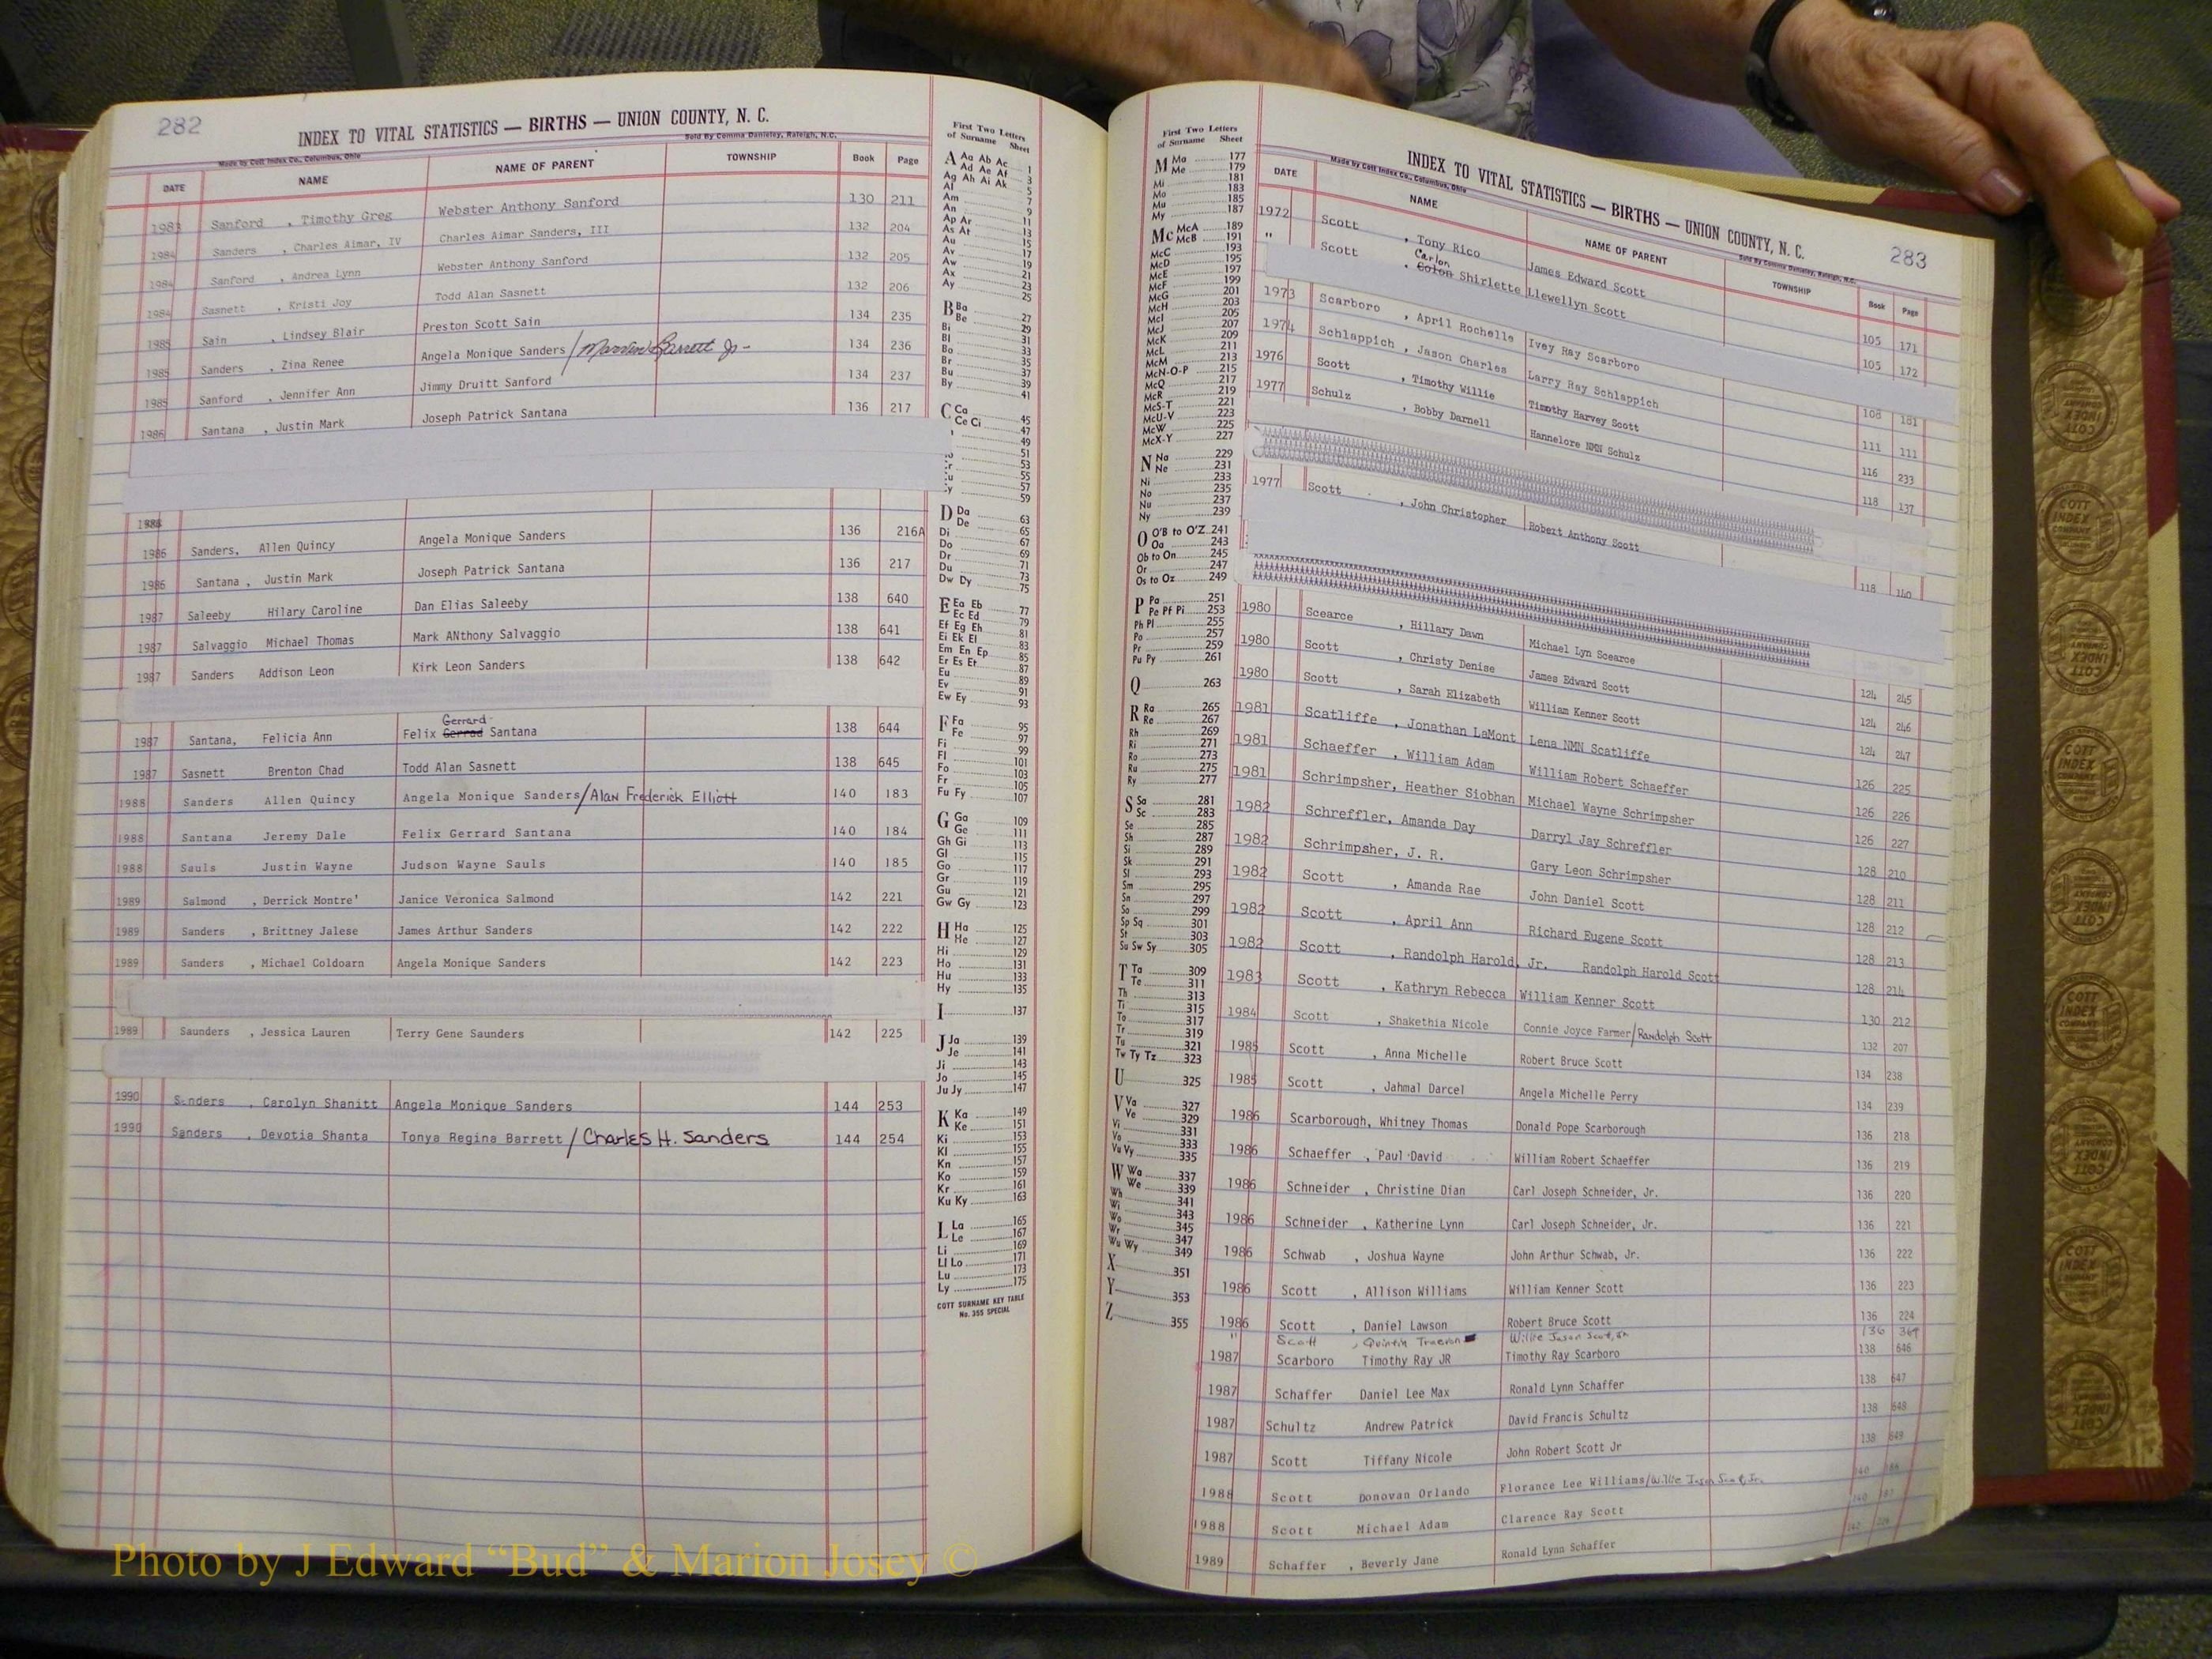 282
INDEX TO VITAL STATISTICS — BIRTHS — UNION COUNTY, N. C.
Made by Cott Index Co., Columbus, Ohio Sold By Comma Danieley, Raleigh, N.C.
DATE NAME NAME OF PARENT TOWNSHIP Book Page
1983 Sanford , Timothy Greg Webster Anthony Sanford 130 211
1984 Sanders , Charles Aimar, IV Charles Aimar Sanders, III 132 204
1984 Sanford , Andrea Lynn Webster Anthony Sanford 132 205
1984 Sasnett , Kristi Joy Todd Alan Sasnett 132 206
1985 Sain , Lindsey Blair Preston Scott Sain 134 235
1985 Sanders , Zina Renee Angela Monique Sanders / Barrett Jr- 134 236
1985 Sanford , Jennifer Ann Jimmy Druitt Sanford 134 237
1986 Santana , Justin Mark Joseph Patrick Santana 136 217
1986 Sanders, Allen Quincy Angela Monique Sanders 136 216A
1986 Santana , Justin Mark Joseph Patrick Santana 136 217
1987 Saleeby Hilary Caroline Dan Elias Saleeby 138 640
1987 Salvaggio Michael Thomas Mark ANthony Salvaggio 138 641
1987 Sanders Addison Leon Kirk Leon Sanders 138 642
Gerrard
1987 Santana, Felicia Ann Felix Gerrad Santana 138 644
1987 Sasnett Brenton Chad Todd Alan Sasnett 138 645
1988 Sanders Allen Quincy Angela Monique Sanders/Alan Frederick Elliott 140 183
1988 Santana Jeremy Dale Felix Gerrard Santana 140 184
1988 Sauls Justin Wayne Judson Wayne Sauls 140 185
1989 Salmond , Derrick Montre' Janice Veronica Salmond 142 221
1989 Sanders , Brittney Jalese James Arthur Sanders 142 222
1989 Sanders , Michael Coldoarn Angela Monique Sanders 142 223
1989 Saunders , Jessica Lauren Terry Gene Saunders 142 225
1990 Sanders , Carolyn Shanitt Angela Monique Sanders 144 253
1990 Sanders , Devotia Shanta Tonya Regina Barrett / Charles H. Sanders 144 254
First Two Letters
of Surname Sheet
A Aa Ab Ac 1
Ad Ae Af 3
Ag Ah Ai Ak 5
Al 7
Am 9
An 11
Ap Ar 13
As At 15
Au 17
Av 19
Aw 21
Ax 23
Ay 25
B Ba 27
Be 29
Bi 31
Bl 33
Bo 35
Br 37
Bu 39
By 41
C Ca 45
Ce Ci 47
49
51
53
55
57
59
D Da 63
De 65
Di 67
Do 69
Dr 71
Du 73
Dw Dy 75
E Ea Eb 77
Ec Ed 79
Ef Eg Eh 81
Ei Ek El 83
Em En Ep 85
Er Es Et 87
Eu 89
Ev 91
Ew Ey 93
F Fa 95
Fe 97
Fi 99
Fl 101
Fo 103
Fr 105
Fu Fy 107
G Ga 109
Ge 111
Gh Gi 113
Gl 115
Go 117
Gr 119
Gu 121
Gw Gy 123
H Ha 125
He 127
Hi 129
Ho 131
Hu 133
Hy 135
I 137
J Ja 139
Je 141
Ji 143
Jo 145
Ju Jy 147
K Ka 149
Ke 151
Ki 153
Kl 155
Kn 157
Ko 159
Kr 161
Ku Ky 163
L La 165
Le 167
Li 169
Ll Lo 171
Lu 173
Ly 175
COTT SURNAME KEY TABLE
No. 355 SPECIAL
First Two Letters
of Surname Sheet
M Ma 177
Me 179
Mi 181
Mo 183
Mu 185
My 187
Mc McA 189
McB 191
McC 193
McD 195
McE 197
McF 199
McG 201
McH 203
McI 205
McJ 207
McK 209
McL 211
McM 213
McN-O-P 215
McQ 217
McR 219
McS-T 221
McU-V 223
McW 225
McX-Y 227
N Na 229
Ne 231
Ni 233
No 235
Nu 237
Ny 239
O O'B to O'Z 241
Oa 243
Ob to On 245
Or 247
Os to Oz 249
P Pa 251
Pe Pf Pi 253
Ph Pl 255
Po 257
Pr 259
Pu Py 261
Q 263
R Ra 265
Re 267
Rh 269
Ri 271
Ro 273
Ru 275
Ry 277
S Sa 281
Sc 283
Se 285
Sh 287
Si 289
Sk 291
Sl 293
Sm 295
Sn 297
So 299
Sp Sq 301
St 303
Su Sw Sy 305
T Ta 309
Te 311
Th 313
Ti 315
To 317
Tr 319
Tu 321
Tw Ty Tz 323
U 325
V Va 327
Ve 329
Vi 331
Vo 333
Vu Vy 335
W Wa 337
We 339
Wh 341
Wi 343
Wo 345
Wr 347
Wu Wy 349
X 351
Y 353
Z 355
283
INDEX TO VITAL STATISTICS — BIRTHS — UNION COUNTY, N. C.
Made by Cott Index Co., Columbus, Ohio Sold By Comma Danieley, Raleigh, N.C.
DATE NAME NAME OF PARENT TOWNSHIP Book Page
1972 Scott , Tony Rico James Edward Scott 105 171
Carlon
" Scott , Colon Shirlette Llewellyn Scott 105 172
1973 Scarboro , April Rochelle Ivey Ray Scarboro 108 181
1974 Schlappich , Jason Charles Larry Ray Schlappich 111 111
1976 Scott , Timothy Willie Timothy Harvey Scott 116 233
1977 Schulz , Bobby Darnell Hannelore NMN Schulz 118 137
1977 Scott , John Christopher Robert Anthony Scott 118 140
1980 Scearce , Hillary Dawn Michael Lyn Scearce 124 245
1980 Scott , Christy Denise James Edward Scott 124 246
1980 Scott , Sarah Elizabeth William Kenner Scott 124 247
1981 Scatliffe , Jonathan LaMont Lena NMN Scatliffe 126 225
1981 Schaeffer , William Adam William Robert Schaeffer 126 226
1981 Schrimpsher, Heather Siobhan Michael Wayne Schrimpsher 126 227
1982 Schreffler, Amanda Day Darryl Jay Schreffler 128 210
1982 Schrimpsher, J. R. Gary Leon Schrimpsher 128 211
1982 Scott , Amanda Rae John Daniel Scott 128 212
1982 Scott , April Ann Richard Eugene Scott 128 213
1982 Scott , Randolph Harold, Jr. Randolph Harold Scott 128 214
1983 Scott , Kathryn Rebecca William Kenner Scott 130 212
1984 Scott , Shakethia Nicole Connie Joyce Farmer/Randolph Scott 132 207
1985 Scott , Anna Michelle Robert Bruce Scott 134 238
1985 Scott , Jahmal Darcel Angela Michelle Perry 134 239
1986 Scarborough, Whitney Thomas Donald Pope Scarborough 136 218
1986 Schaeffer , Paul David William Robert Schaeffer 136 219
1986 Schneider , Christine Dian Carl Joseph Schneider, Jr. 136 220
1986 Schneider , Katherine Lynn Carl Joseph Schneider, Jr. 136 221
1986 Schwab , Joshua Wayne John Arthur Schwab, Jr. 136 222
1986 Scott , Allison Williams William Kenner Scott 136 223
1986 Scott , Daniel Lawson Robert Bruce Scott 136 224
" Scott , Quintin Willie Jason Scott, Jr. 136 369
1987 Scarboro Timothy Ray JR Timothy Ray Scarboro 138 646
1987 Schaffer Daniel Lee Max Ronald Lynn Schaffer 138 647
1987 Schultz Andrew Patrick David Francis Schultz 138 648
1987 Scott Tiffany Nicole John Robert Scott Jr 138 649
1988 Scott Donovan Orlando Florance Lee Williams/Willie Jason Scott, Jr. 140
1988 Scott Michael Adam Clarence Ray Scott 140
1989 Schaffer , Beverly Jane Ronald Lynn Schaffer 142
Photo by J Edward "Bud" & Marion Josey ©
COTT INDEX COMPANY